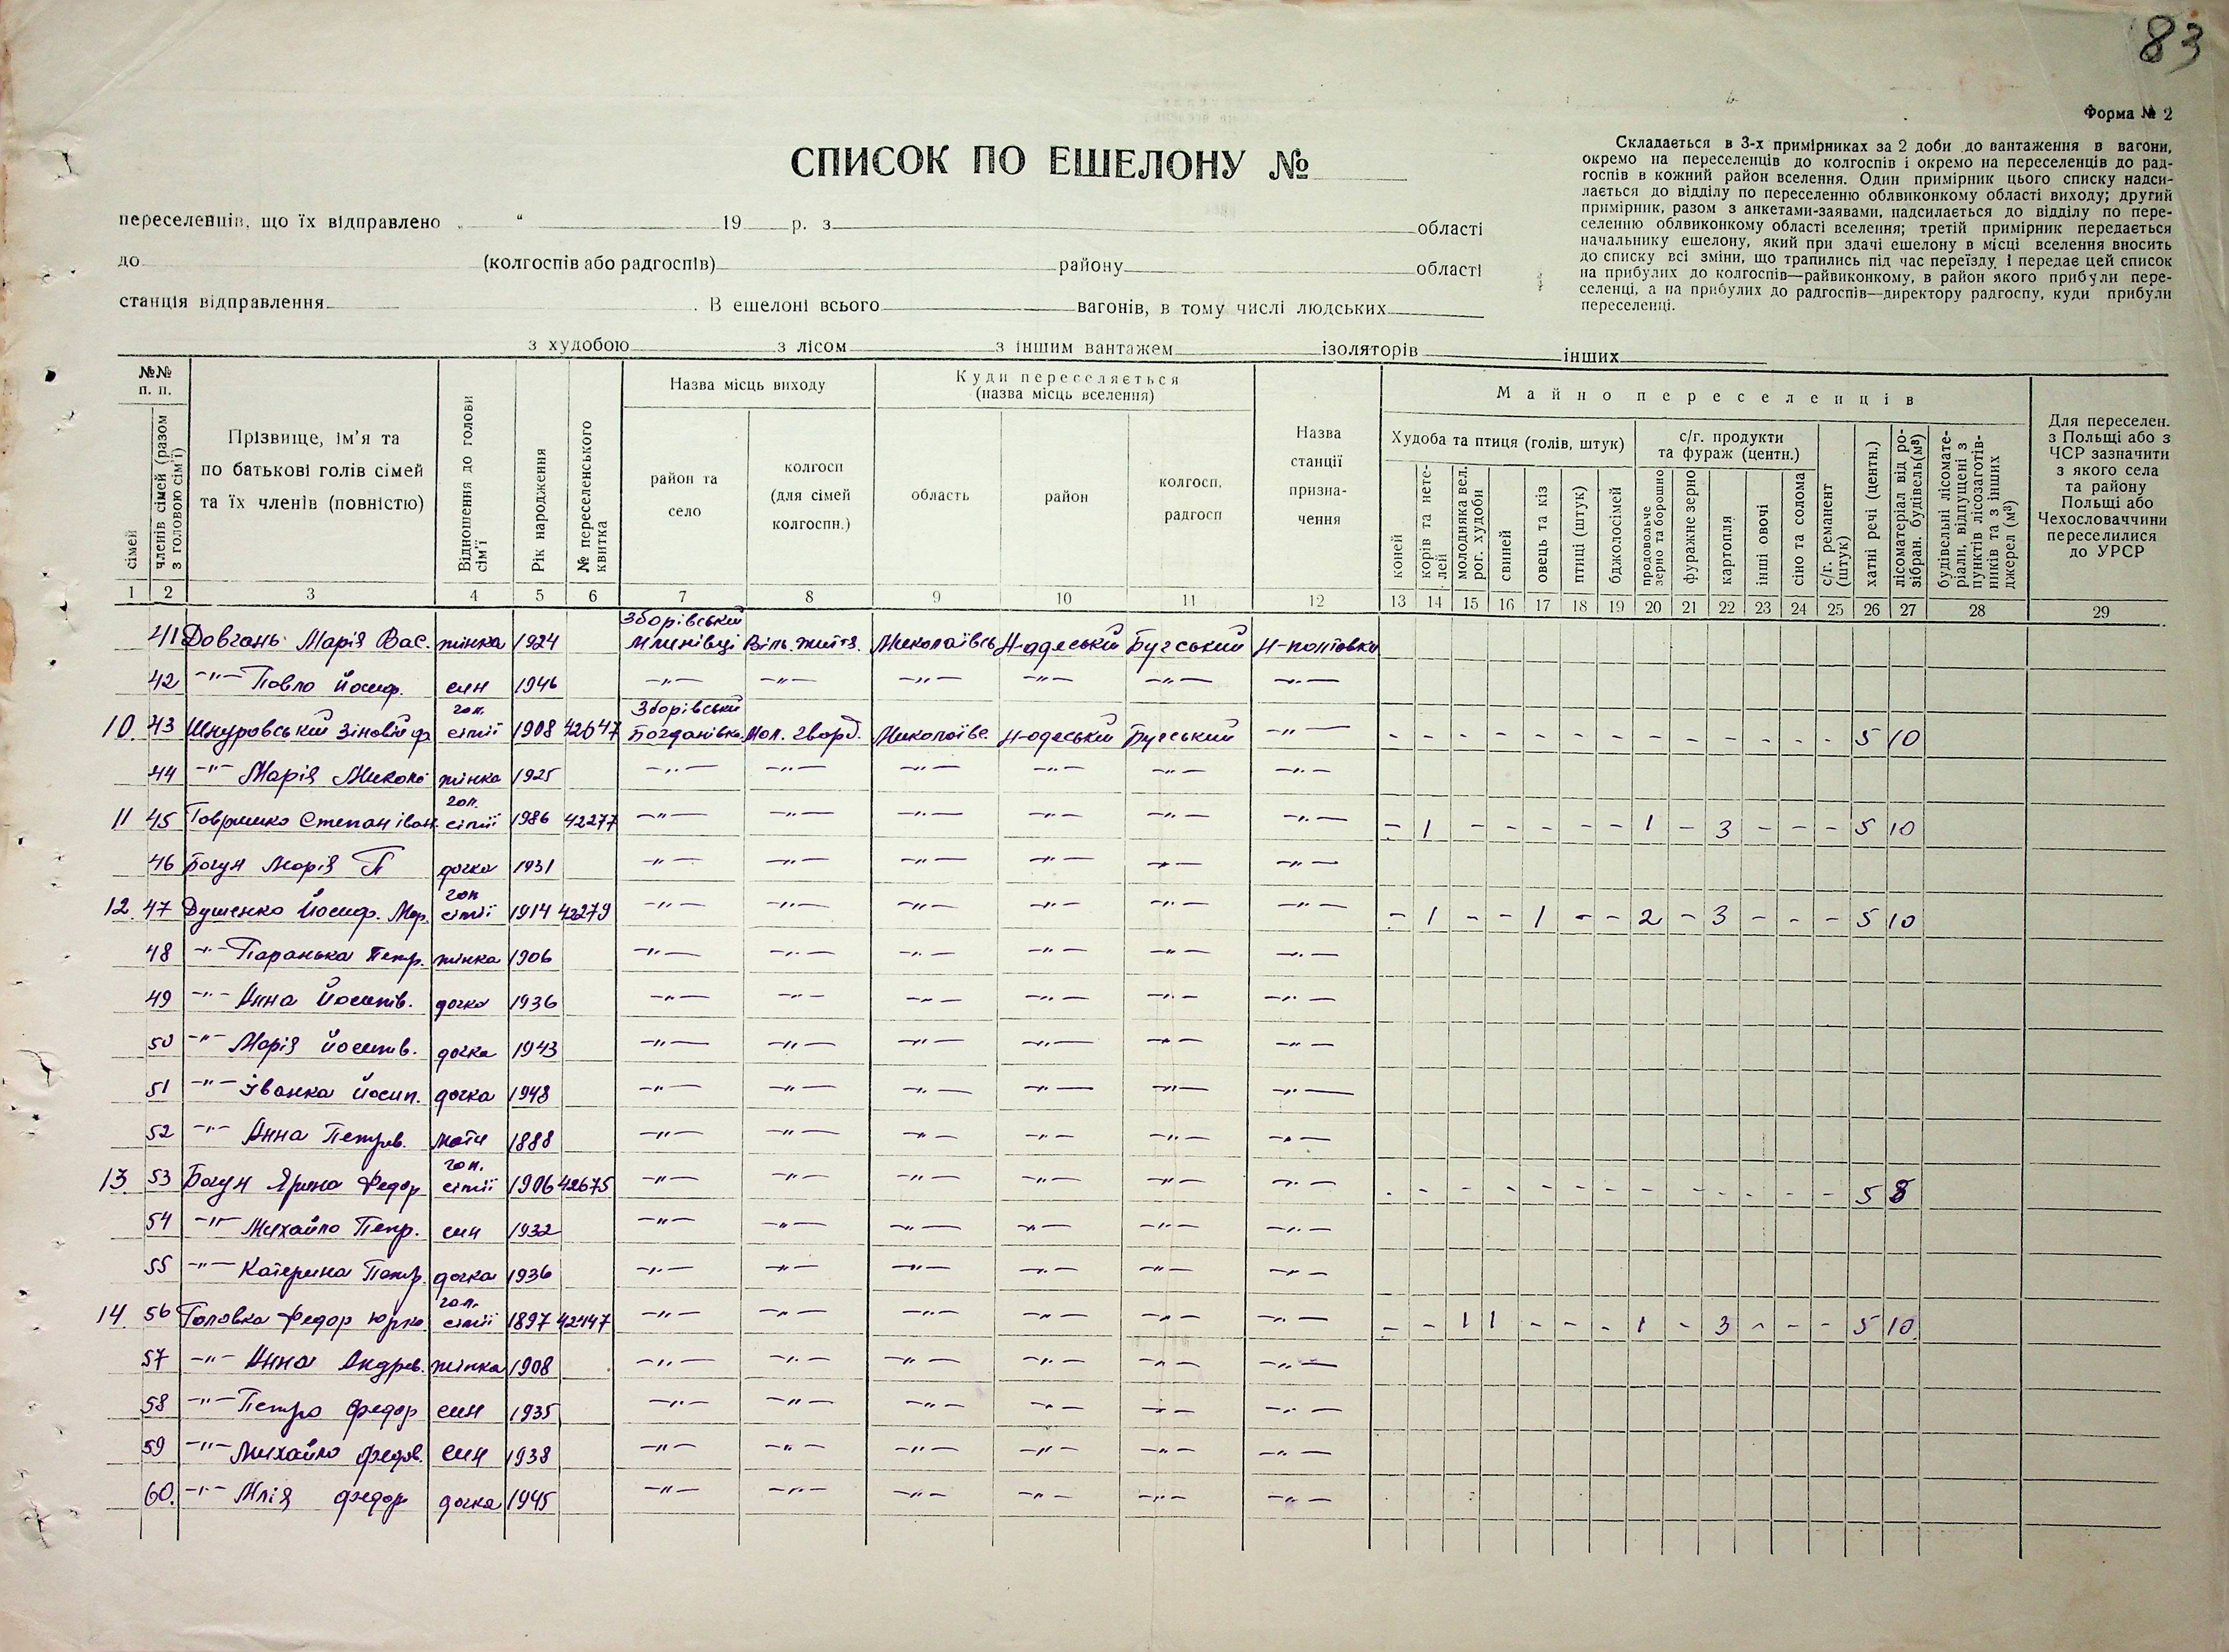 83
Форма № 2
СПИСОК ПО ЕШЕЛОНУ №
Складається в 3-х примірниках за 2 доби до вантаження в вагони,
окремо на переселенців до колгоспів і окремо на переселенців до рад-
госпів в кожний район вселення. Один примірник цього списку надси-
лається до відділу по переселенню облвиконкому області виходу; другий
примірник, разом з анкетами-заявами, надсилається до відділу по пере-
селенню облвиконкому області вселення; третій примірник передається
начальнику ешелону, який при здачі ешелону в місці вселення вносить
до списку всі зміни, що трапились під час переїзду, і передає цей список
на прибулих до колгоспів—райвиконкому, в район якого прибули пере-
селенці, а на прибулих до радгоспів—директору радгоспу, куди прибули
переселенці.
переселенців, що їх відправлено „ “ 19 р. з області
до (колгоспів або радгоспів) району області
станція відправлення . В ешелоні всього вагонів, в тому числі людських
з худобою з лісом з іншим вантажем ізоляторів інших
№№ п. п.
сімей
членів сімей (разом з головою сім'ї)
Прізвище, ім'я та
по батькові голів сімей
та їх членів (повністю)
Відношення до голови сім'ї
Рік народження
№ переселенського квитка
Назва місць виходу
район та
село
колгосп
(для сімей
колгоспн.)
Куди переселяється
(назва місць вселення)
область
район
колгосп,
радгосп
Назва
станції
призна-
чення
Майно переселенців
Худоба та птиця (голів, штук)
коней
корів та нете-
лей
молодняка вел.
рог. худоби
свиней
овець та кіз
птиці (штук)
бджолосімей
с/г. продукти
та фураж (центн.)
продовольче
зерно та борошно
фуражне зерно
картопля
інші овочі
сіно та солома
с/г. реманент
(штук)
хатні речі (центн.)
лісоматеріал від ро-
зібран. будівель(м³)
будівельні лісомате-
ріали, відпущені з
пунктів лісозаготів-
ників та з інших
джерел (м³)
Для переселен.
з Польщі або з
ЧСР зазначити
з якого села
та району
Польщі або
Чехословаччини
переселилися
до УРСР
1 2 3 4 5 6 7 8 9 10 11 12 13 14 15 16 17 18 19 20 21 22 23 24 25 26 27 28 29
Зборівський
41 Довгань Марія Вас. жінка 1924 Млинівці Віль. життя. Миколаївсь Н-одеський Бугський Н-полтовка
42 -"- Павло Йосиф. син 1946 -"- -"- -"- -"- -"- -"-
гол. Зборівський
10. 43 Шнуровський Зіновій ф. сімії 1908 42647 Богданівка Мол. гвард. Миколаївс. Н-одеський Бугський -"- - - - - - - - - - - - - - 5 10
44 -"- Марія Микол. жінка 1925 -"- -"- -"- -"- -"- -"-
гол.
11 45 Степан Іван. сімії 1986 42277 -"- -"- -"- -"- -"- -"- - 1 - - - - - 1 - 3 - - - 5 10
46 Богун Марія П дочка 1931 -"- -"- -"- -"- -"- -"-
гол
12. 47 Душенко Йосиф. Мар. сімії 1914 42279 -"- -"- -"- -"- -"- -"- - 1 - - 1 - - 2 - 3 - - - 5 10
48 -"- Паранька Петр. жінка 1906 -"- -"- -"- -"- -"- -"-
49 -"- Анна Йосипів. дочка 1936 -"- -"- -"- -"- -"- -"-
50 -"- Марія Йосипів. дочка 1943 -"- -"- -"- -"- -"- -"-
51 -"- Іванка Йосип. дочка 1948 -"- -"- -"- -"- -"- -"-
52 -"- Анна Петрів. мати 1888 -"- -"- -"- -"- -"- -"-
гол.
13. 53 Богун Ярина Федор сімії 1906 42675 -"- -"- -"- -"- -"- -"- - - - - - - - - - - - - - 5 8
54 -"- Михайло Петр. син 1932 -"- -"- -"- -"- -"- -"-
55 -"- Катерина Петр. дочка 1936 -"- -"- -"- -"- -"- -"-
гол.
14. 56 Головка Федор Юрко сімії 1897 42447 -"- -"- -"- -"- -"- -"- - - 1 1 - - - 1 - 3 - - - 5 10
57 -"- Анна Андрев. жінка 1908 -"- -"- -"- -"- -"- -"-
58 -"- Петро Федор син 1935 -"- -"- -"- -"- -"- -"-
59 -"- Михайло Федов. син 1938 -"- -"- -"- -"- -"- -"-
60. -"- Федор дочка 1945 -"- -"- -"- -"- -"- -"-